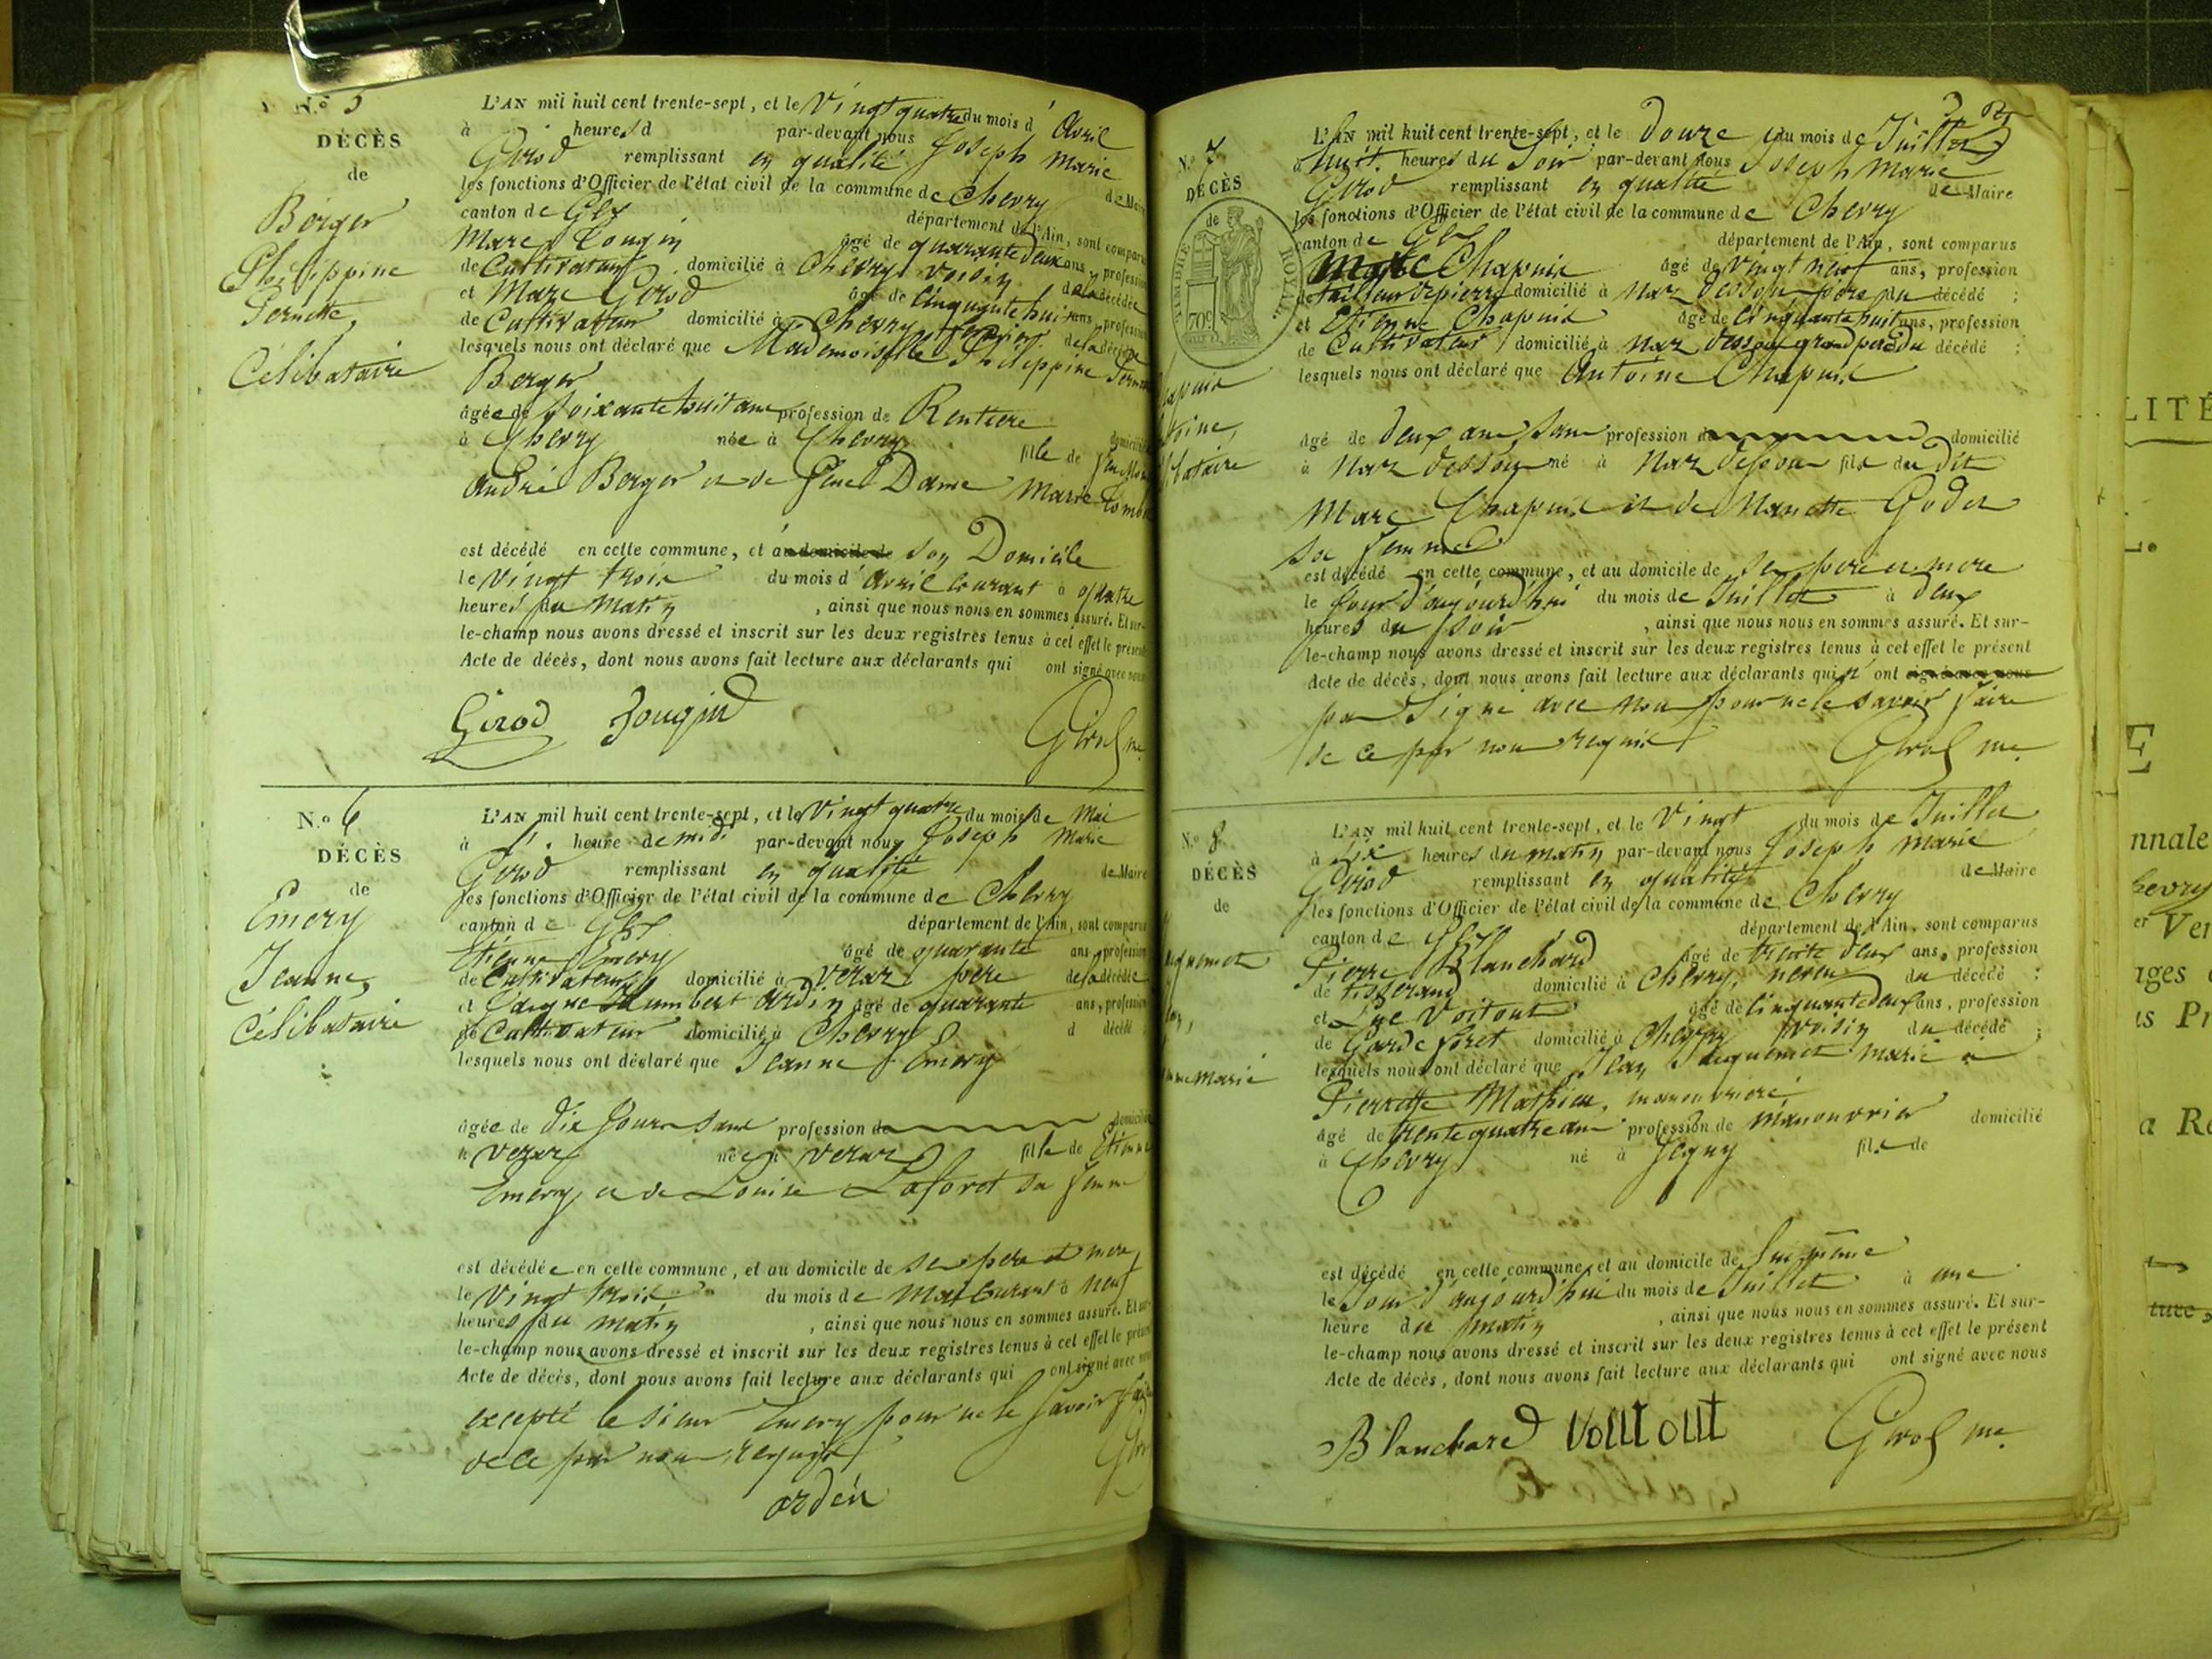 N.o 5
DÉCÈS
de
Berger
Philippine
Pernette,
Célibataire
L'AN mil huit cent trente-sept, et le Vingt quatre du mois d'avril
à heures d par-devant nous Joseph Marie
Girod remplissant en qualité de Maire
les fonctions d'Officier de l'état civil de la commune de Chevry
canton de Gex département de l'Ain, sont comparus
Marc Tougin âgé de quarante deux ans, profession
de Cultivateur domicilié à Chevry voisin de la décédée
et Marc Girod âgé de cinquante huit ans, profession
de Cultivateur domicilié à Chevry de la décédée
lesquels nous ont déclaré que Mademoiselle Philippine
Berger
âgée de soixante huit ans profession de Rentiere
à Chevry née à Chevry fille de feu
André Berger et de feue Dame Marie
est décédé en cette commune, et au domicile de son Domicile
le vingt trois du mois d'avril courant à quatre
heures du matin , ainsi que nous nous en sommes assuré. Et sur-
le-champ nous avons dressé et inscrit sur les deux registres tenus à cet effet le présent
Acte de décès, dont nous avons fait lecture aux déclarants qui ont signé avec nous
Girod Tougin Girod me
N.o 6
DÉCÈS
de
Emery
Jeanne,
Célibataire
L'AN mil huit cent trente-sept, et le Vingt quatre du mois de Mai
à 1. heure de midi par-devant nous Joseph Marie
Girod remplissant en qualité de Maire
les fonctions d'Officier de l'état civil de la commune de Chevry
canton de Gex département de l'Ain, sont comparus
Etienne Emery âgé de quarante ans, profession
de Cultivateur domicilié à Veraz père de la décédée
et Humbert ardin âgé de quarante ans, profession
de Cultivateur domicilié à Chevry d décédé
lesquels nous ont déclaré que Jeanne Emery
âgée de dix Jours sans profession de domicilié
à Veraz née à Veraz fille de Etienne
Emery et de Louise Laforet sa femme
est décédée en cette commune, et au domicile de ses pere et mere
le Vingt trois du mois de Mai Courant à neuf
heures du matin , ainsi que nous nous en sommes assuré. Et sur-
le-champ nous avons dressé et inscrit sur les deux registres tenus à cet effet le présent
Acte de décès, dont nous avons fait lecture aux déclarants qui ont signé avec nous
excepté le sieur Emery pour ne le savoir faire
de ce par nous requis
arden
N.o 7
DÉCÈS
de
TIMBRE ROYAL
70c
L'AN mil huit cent trente-sept, et le douze du mois de Juillet
à huit heures du Soir par-devant nous Joseph Marie
Girod remplissant en qualité de Maire
les fonctions d'Officier de l'état civil de la commune de Chevry
canton de Gex département de l'Ain, sont comparus
Marc Chapuis âgé de vingt neuf ans, profession
de tailleur de pierre domicilié à Naz dessous père du décédé ;
et Etienne Chapuis âgé de cinquante huit ans, profession
de Cultivateur domicilié à Naz dessous grand père du décédé ;
lesquels nous ont déclaré que Antoine Chapuis
âgé de deux ans, sans profession de domicilié
à Naz dessous né à Naz dessous fils du dit
Marc Chapuis et de Nanette Godet
sa femme
est décédé en cette commune, et au domicile de ses père et mere
le Jour d'aujourd'hui du mois de Juillet à deux
heures du soir , ainsi que nous nous en sommes assuré. Et sur-
le-champ nous avons dressé et inscrit sur les deux registres tenus à cet effet le présent
Acte de décès, dont nous avons fait lecture aux déclarants qui n'ont signé avec nous
pas Signé avec nous pour ne le savoir faire
de ce par nous requis Girod me
N.o 8
DÉCÈS
de
L'AN mil huit cent trente-sept, et le Vingt du mois de Juillet
à Six heures du matin par-devant nous Joseph Marie
Girod remplissant en qualité de Maire
les fonctions d'Officier de l'état civil de la commune de Chevry
canton de Gex département de l'Ain, sont comparus
Pierre Blanchard âgé de trente deux ans, profession
de tisserand domicilié à Chevry, neveu du décédé ;
et Luc Voitout âgé de cinquante deux ans, profession
de Garde foret domicilié à Chevry voisin du décédé ;
lesquels nous ont déclaré que Jean Juquemet marié à
Pierrette Mathieu, manouvriere
âgé de trente quatre ans profession de manouvrier domicilié
à Chevry né à Segny fils de
est décédé en cette commune, et au domicile de lui même
le Jour d'aujourd'hui du mois de Juillet à une
heure du matin , ainsi que nous nous en sommes assuré. Et sur-
le-champ nous avons dressé et inscrit sur les deux registres tenus à cet effet le présent
Acte de décès, dont nous avons fait lecture aux déclarants qui ont signé avec nous
Blanchard Voitout Girod me